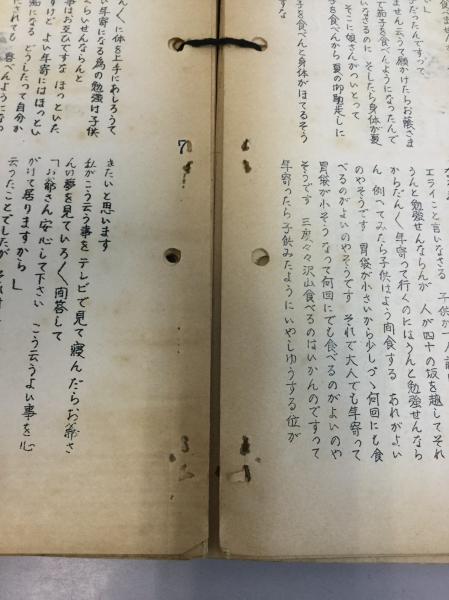 エライこと言いなさる 子供が一人
うんと勉強せんならんが 人が四十の坂を越してそれ
からだん〱年寄って行くのにはうんと勉強せんなら
ん 例へてみたら子供はよう間食する あれがよい
のやそうです 胃袋が小さいから少しづゝ何回にも食
べるのがよいのやそうです それで大人でも年寄って
胃袋が小そうなって何回にでも食べるのがよいのや
そうです 三度々々沢山食べるのはいかんのですって
年寄ったら子供みたようにいやしゆうする位が
だったんですって、
ません云うて願かけたらお蔭さま
で茄子を食べんようになったんで
いなさるのに そしたら身体が夏
そこに娘さんがついとって
子を食べんから夏の御馳走しに
を食べんと身体がほてるそう
すな
ん〱に体を上手にあしろうて
い年寄になる為の勉強は子供
くらいせんならんと
事はお互ひですな ほっといた
すけど よい年寄にはほっとい
になる どうしたって自分か
7
きたいと思います
私がこう云う事をテレビで見て寝んだらお爺さ
んの夢を見ていろ〱問答して
「お爺さん安心して下さい こう云うよい事を心
がけて居りますから」
云うたことでしたが